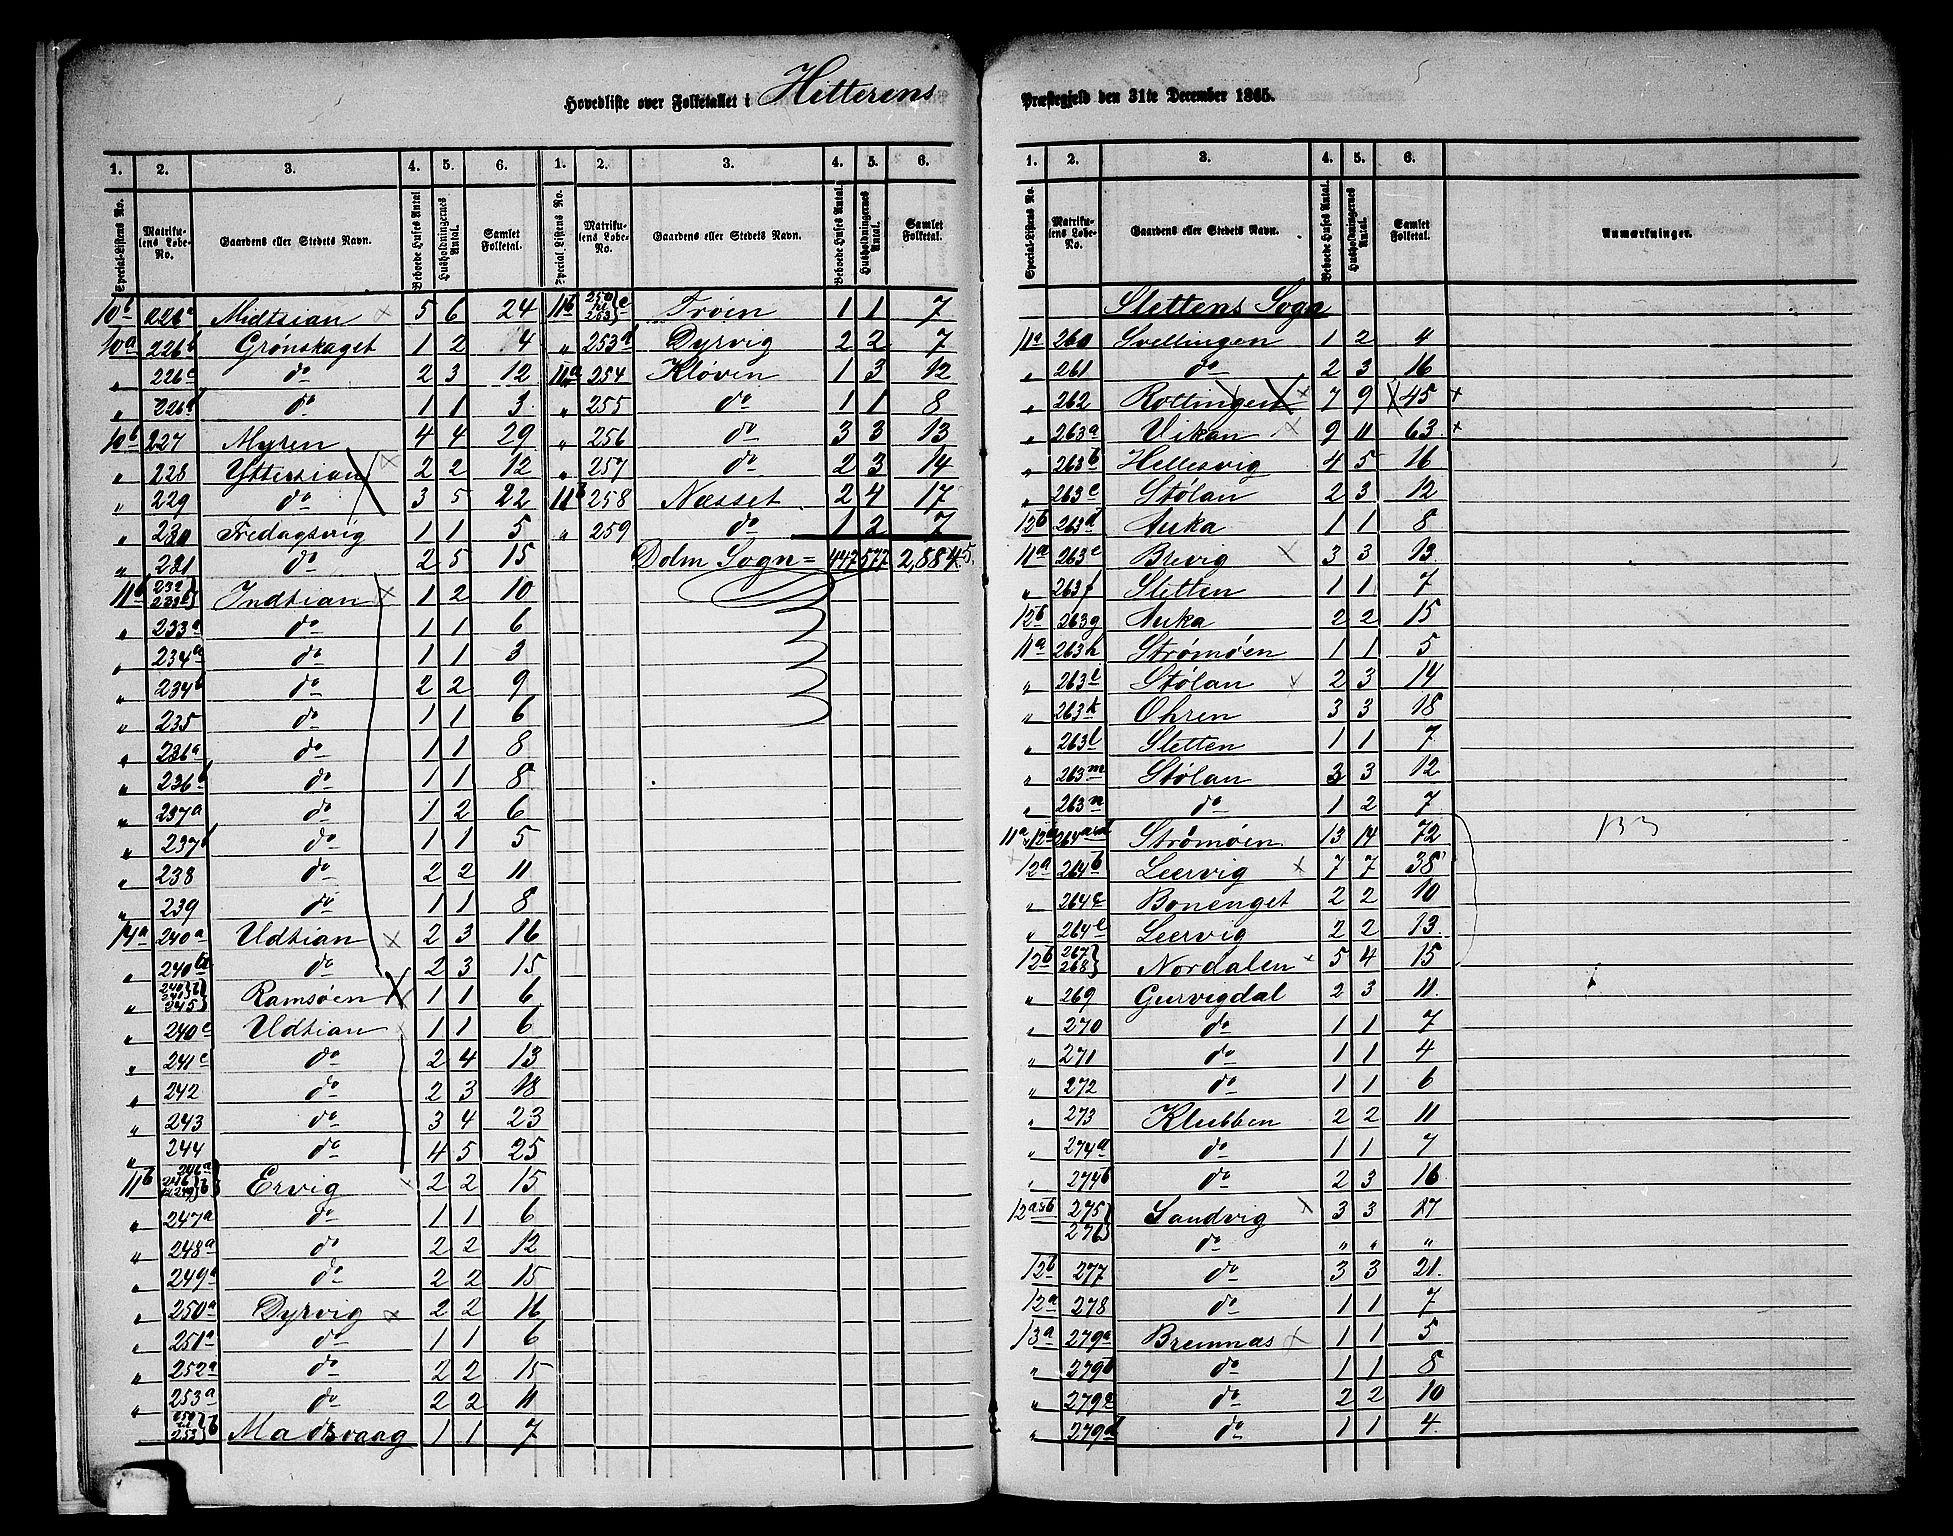 Hovedliste over Folketallet i Hitterens Præstegjeld den 31te December 1865.
1. 2. 3. 4. 5. 6. 1. 2. 3. 4. 5. 6.
Special-Listens No. Matrikulens Løbe-No. Gaardens eller Stedets Navn. Beboede Huses Antal Husholdningernes Antal. Samlet Folketal. Special Listens No. Matrikulens Løbe-No. Gaardens eller Stedets Navn. Beboede Huses Antal. Husholdningernes Antal. Samlet Folketal.
10b 226a Midtsian 5 6 24
10a 226b Grønskaget 1 2 4
" 226c do 2 3 12
" 226d do 1 1 3
10b 227 Myren 4 4 29
" 228 Yttersian 2 2 12
" 229 do 3 5 22
" 230 Fredagsvig 1 1 5
" 231 do 2 5 15
11b 232 233b Indtian 1 2 10
" 233a do 1 1 6
" 234a do 1 1 3
" 234b do 2 2 9
" 235 do 1 1 6
" 236a do 1 1 8
" 236b do 1 1 8
" 237a do 1 2 6
" 237b do 1 1 5
" 238 do 2 2 11
" 239 do 1 1 8
14a 240a Udtian 2 3 16
" 240 do 2 3 15
" 245 Ramsøen 1 1 6
" 240c Udtian 1 1 6
" 241c do 2 4 13
" 242 do 2 3 18
" 243 do 3 4 23
" 244 do 4 5 25
11b 246a 249b Ervig 2 2 15
" 247a do 1 1 6
" 248a do 2 2 12
" 249a do 2 2 15
" 250a Dyrvig 2 2 16
" 251a do 1 1 6
" 252a do 2 2 15
" 253a do 2 2 11
" 250 til 253 b Madsvaag 1 1 7
11b 250 til 253 c Trøen 1 1 7
" 253d Dyrvig 2 2 7
11a 254 Kløven 1 3 12
" 255 do 1 1 8
" 256 do 3 3 13
" 257 do 2 3 14
11b 258 Næsset 2 4 17
" 259 do 1 2 7
Dolm Sogn = 447 577 2,884 5.
1. 2. 3. 4. 5. 6. 7.
Special-Listens No. Matrikulens Løbe-No. Gaardens eller Stedets Navn. Beboede Huses Antal. Husholdningernes Antal. Samlet Folketal. Anmærkninger.
Slettens Sogn
11a 260 Svellingen 1 2 4
" 261 do 2 3 16
" 262 Rottingen 7 9 45
" 263a Vikan 9 11 63
" 263b Hellesvig 4 5 16
" 263c Stølan 2 3 12
12b 263d Auka 1 1 8
11a 263e Brevig 3 3 13
" 263f Sletten 1 1 7
12b 263g Auka 2 2 15
11a 263h Strømøen 1 1 5
" 263i Stølan 2 3 14
" 263k Ohren 3 3 18
" 263l Sletten 1 1 7
" 263m Stølan 3 3 12
" 263n do 1 2 7
11a 12a 264a Strømøen 13 14 72 133
12a 264b Leervig 7 7 38
" 264c Bonenget 2 2 10
" 264e Leervig 2 2 13
12b 267 268 Nordalen 5 4 15
" 269 Gurvigdal 2 3 11
" 270 do 1 1 7
" 271 do 1 1 4
" 272 do 1 1 6
" 273 Klubben 2 2 11
" 274a do 1 1 7
" 274b do 2 3 16
12a&b 275 Sandvig 3 3 17
276 do " " "
12b 277 do 3 3 21
12a 278 do 1 1 7
13a 279a Bremnæs 1 1 5
" 279b do 1 1 8
" 279c do 2 2 10
" 279d do 1 1 4